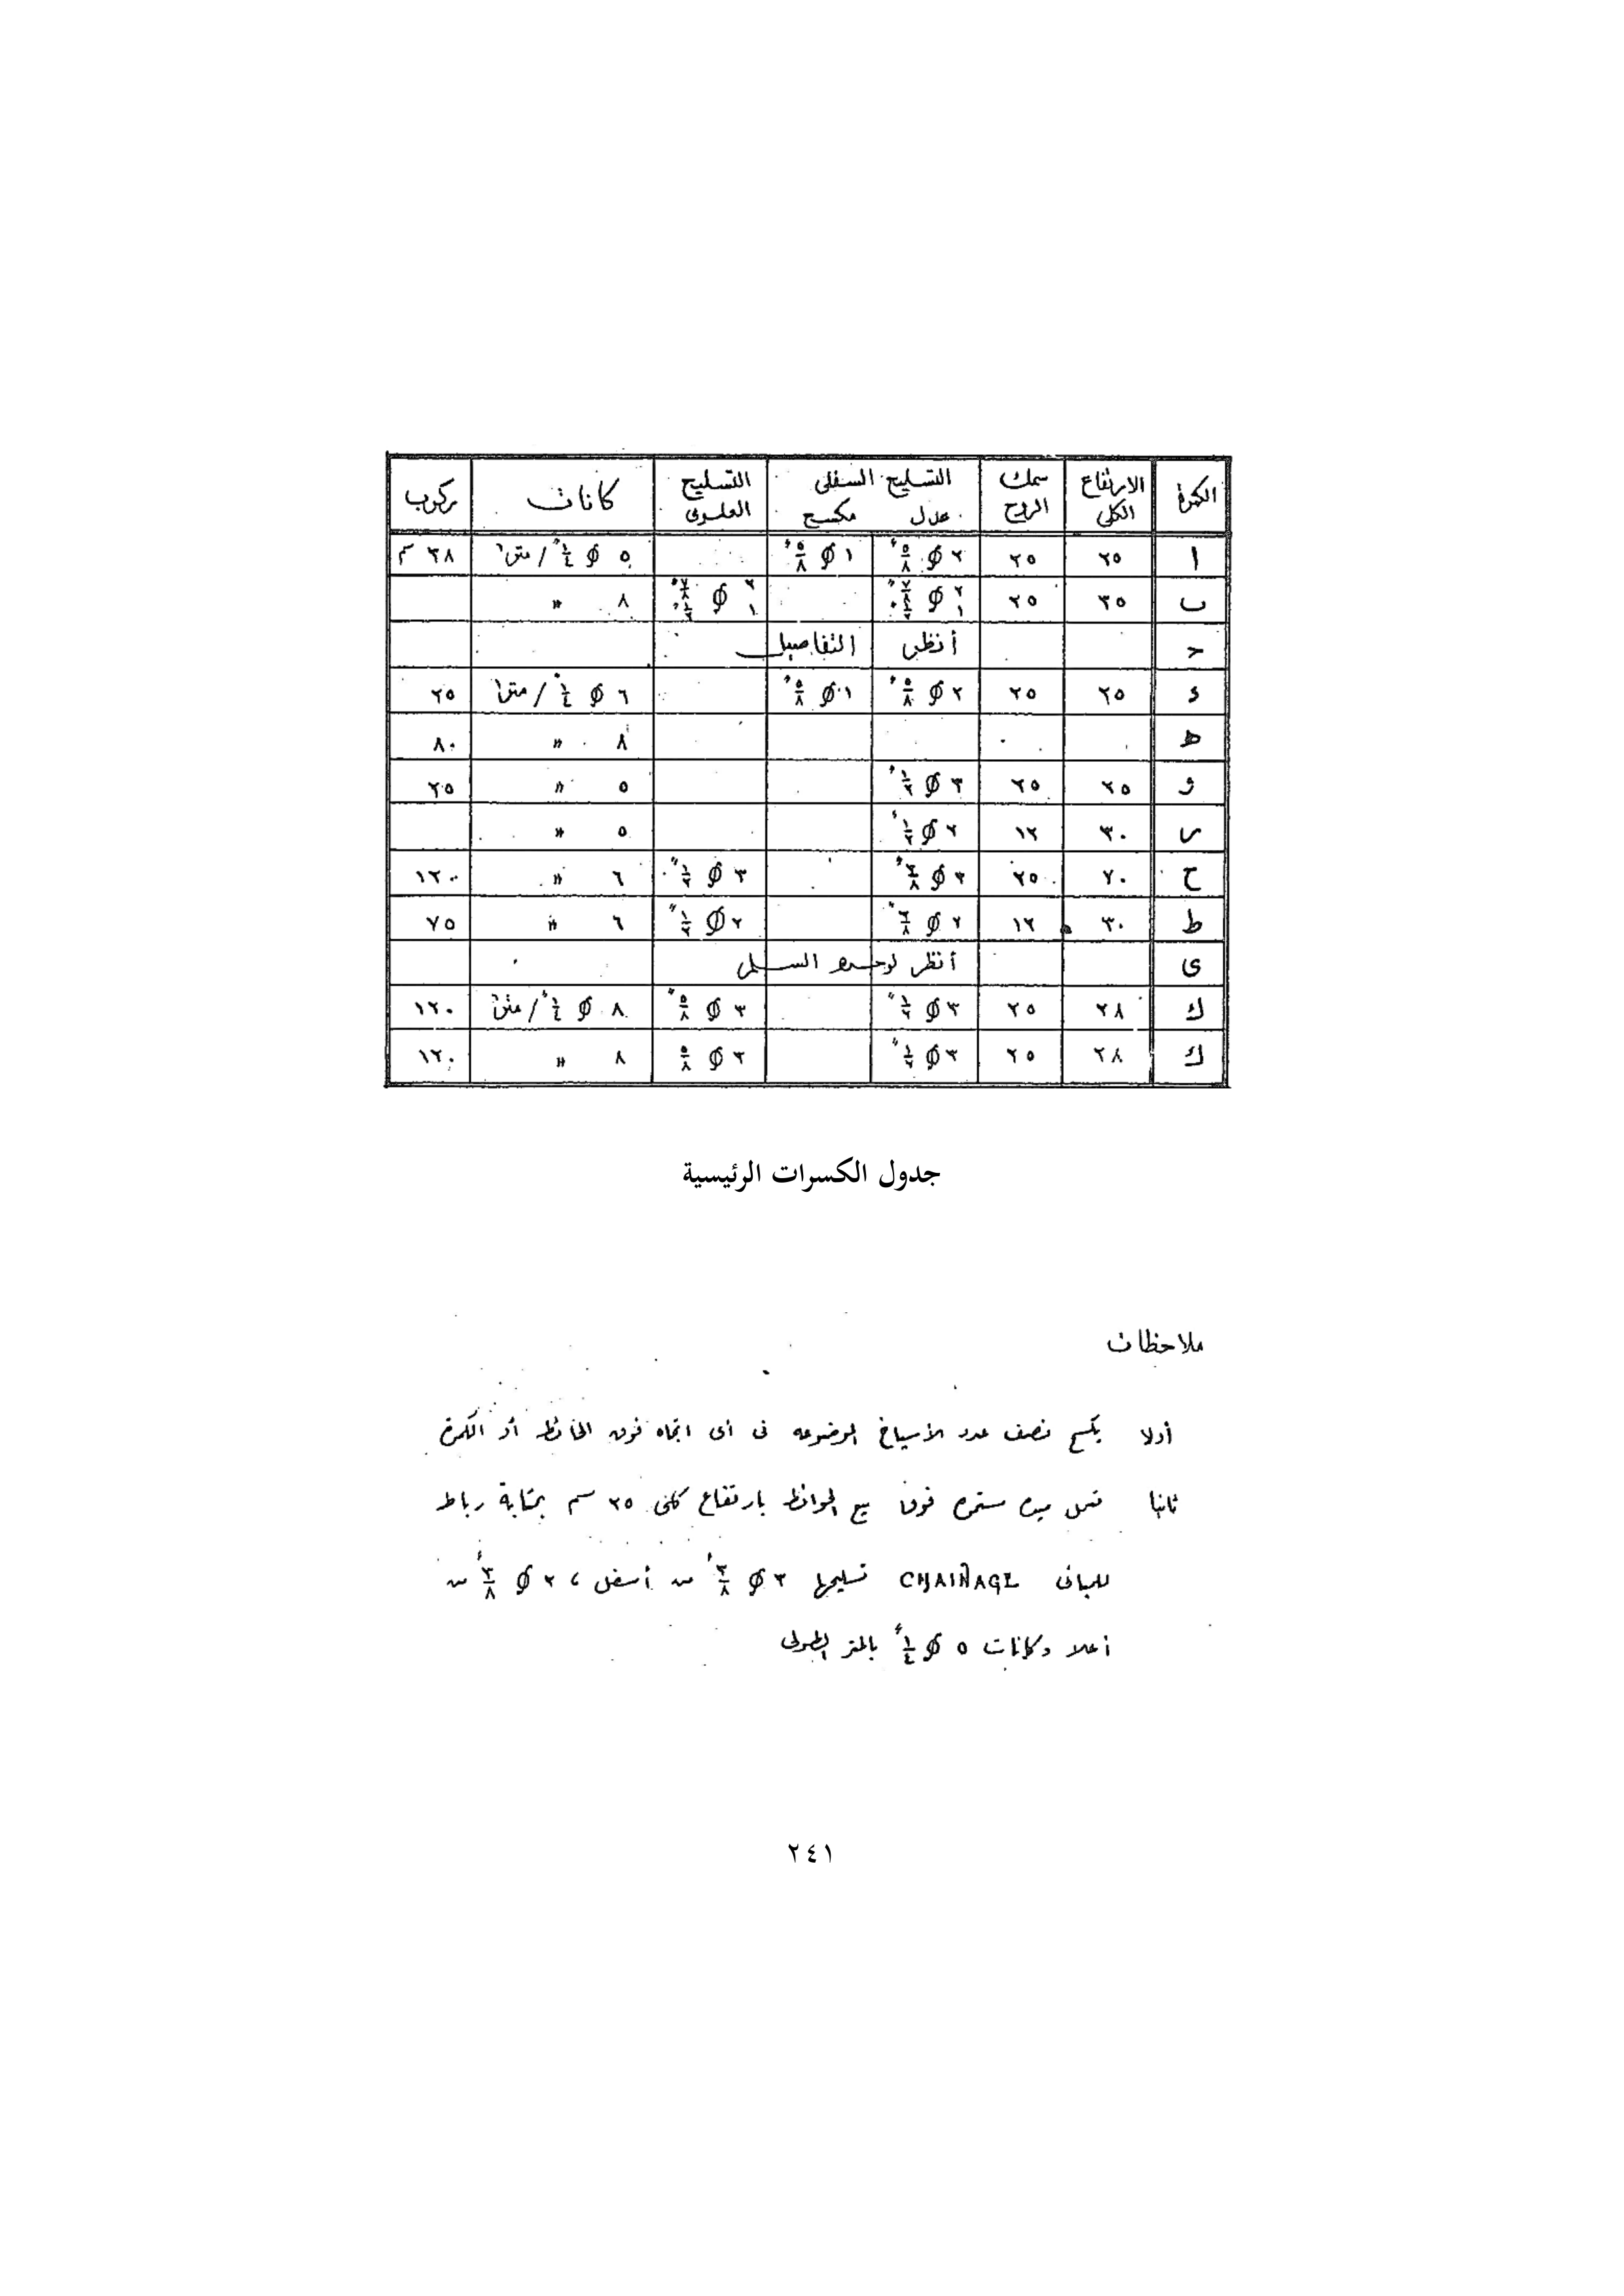 الكمرة الارتفاع الكلى سمك الروح التسليح السفلى عدل مكسح التسليح العلوى كانات ركوب
ا ٢٥ ٢٥ ٢ φ ٥/٨" ١ φ ٥/٨" ٥ φ ١/٤" / متر ٣٨ سم
ب ٣٥ ٢٥ ٢ φ ٧/٨" ١ φ ١/٢" ٢ φ ٧/٨" ١ φ ١/٢" ٨ "
ح أنظر التفاصيل
ء ٢٥ ٢٥ ٢ φ ٥/٨" ١ φ ٥/٨" ٦ φ ١/٤" / متر ٢٥
ه ٨ " ٨٠
و ٢٥ ٢٥ ٣ φ ١/٢" ٥ " ٢٥
ر ٣٠ ١٢ ٢ φ ١/٢" ٥ "
ح ٧٠ ٢٥ ٣ φ ٣/٨" ٣ φ ١/٢" ٦ " ١٢٠
ط ٣٠ ١٢ ٢ φ ٣/٨" ٢ φ ١/٢" ٦ " ٧٥
ى أنظر لوحه السلم
ك ٢٨ ٢٥ ٣ φ ١/٢" ٣ φ ٥/٨" ٨ φ ١/٤" / متر ١٢٠
ك ٢٨ ٢٥ ٣ φ ١/٢" ٣ φ ٥/٨ ٨ " ١٢٠
جدول الكسرات الرئيسية
ملاحظات
أولا يكسح نصف عدد الأسياخ الموضوعه فى أى اتجاه فوق الحائط أو الكمرة
ثانيا تعمل ميده مستمره فوق جميع الحوائط بارتفاع كلى ٢٥ سم بمثابة رباط
للمبانى CHAINAGE تسليحها ٣ φ ٣/٨" من أسفل ، ٢ φ ٣/٨" من
أعلا وكانات ٥ φ ١/٤" بالمتر الطولى
٢٤١